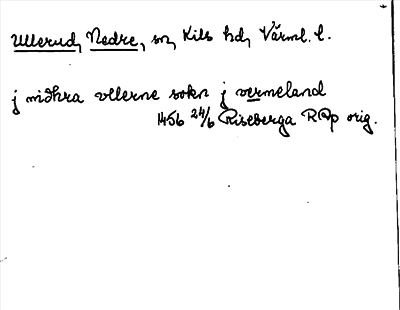 Ullerud, Nedre, sn, Kils hd, Värml. l.
j nidhra vllerne sokn j vermeland
1456 24/6 Riseberga RAp orig.